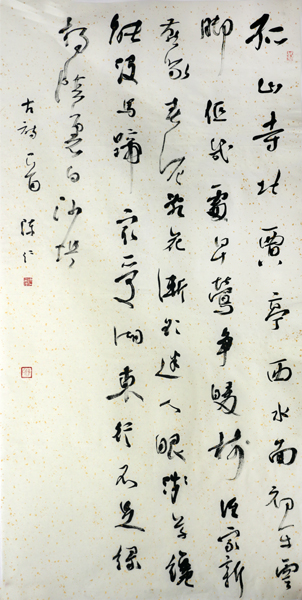 孤山寺北賈亭西水面初平雲
脚低幾處早鶯争暖樹誰家新
燕啄春泥亂花漸欲迷人眼淺草纔
能没馬蹄最愛湖東行不足緑
楊陰裏白沙堤
古詩